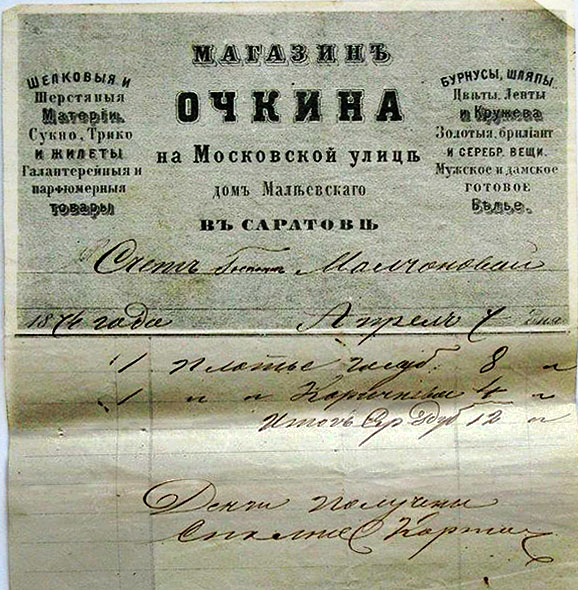 МАГАЗИНЪ
ОЧКИНА
на Московской улицѣ
домъ Малѣевскаго
ВЪ САРАТОВѢ
ШЕЛКОВЫЯ И
Шерстяныя
Матеріи.
Сукно, Трико
И ЖИЛЕТЫ
Галантерейныя и
парфюмерныя
товары
БУРНУСЫ, ШЛЯПЫ
Цвѣты, Ленты
и Кружева
Золотыя, бриліант
И СЕРЕБР. ВЕЩИ.
Мужское и дамское
ГОТОВОЕ
Бѣлье.
Счетъ
18 года Апрель дня
1 платье голуб. 8 "
1 " " Коричнев 4 "
Итого Сер Руб 12 "
Деньги получены